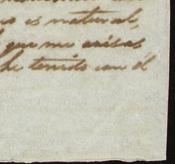 no es natural,
que me avisas
he tenido con él